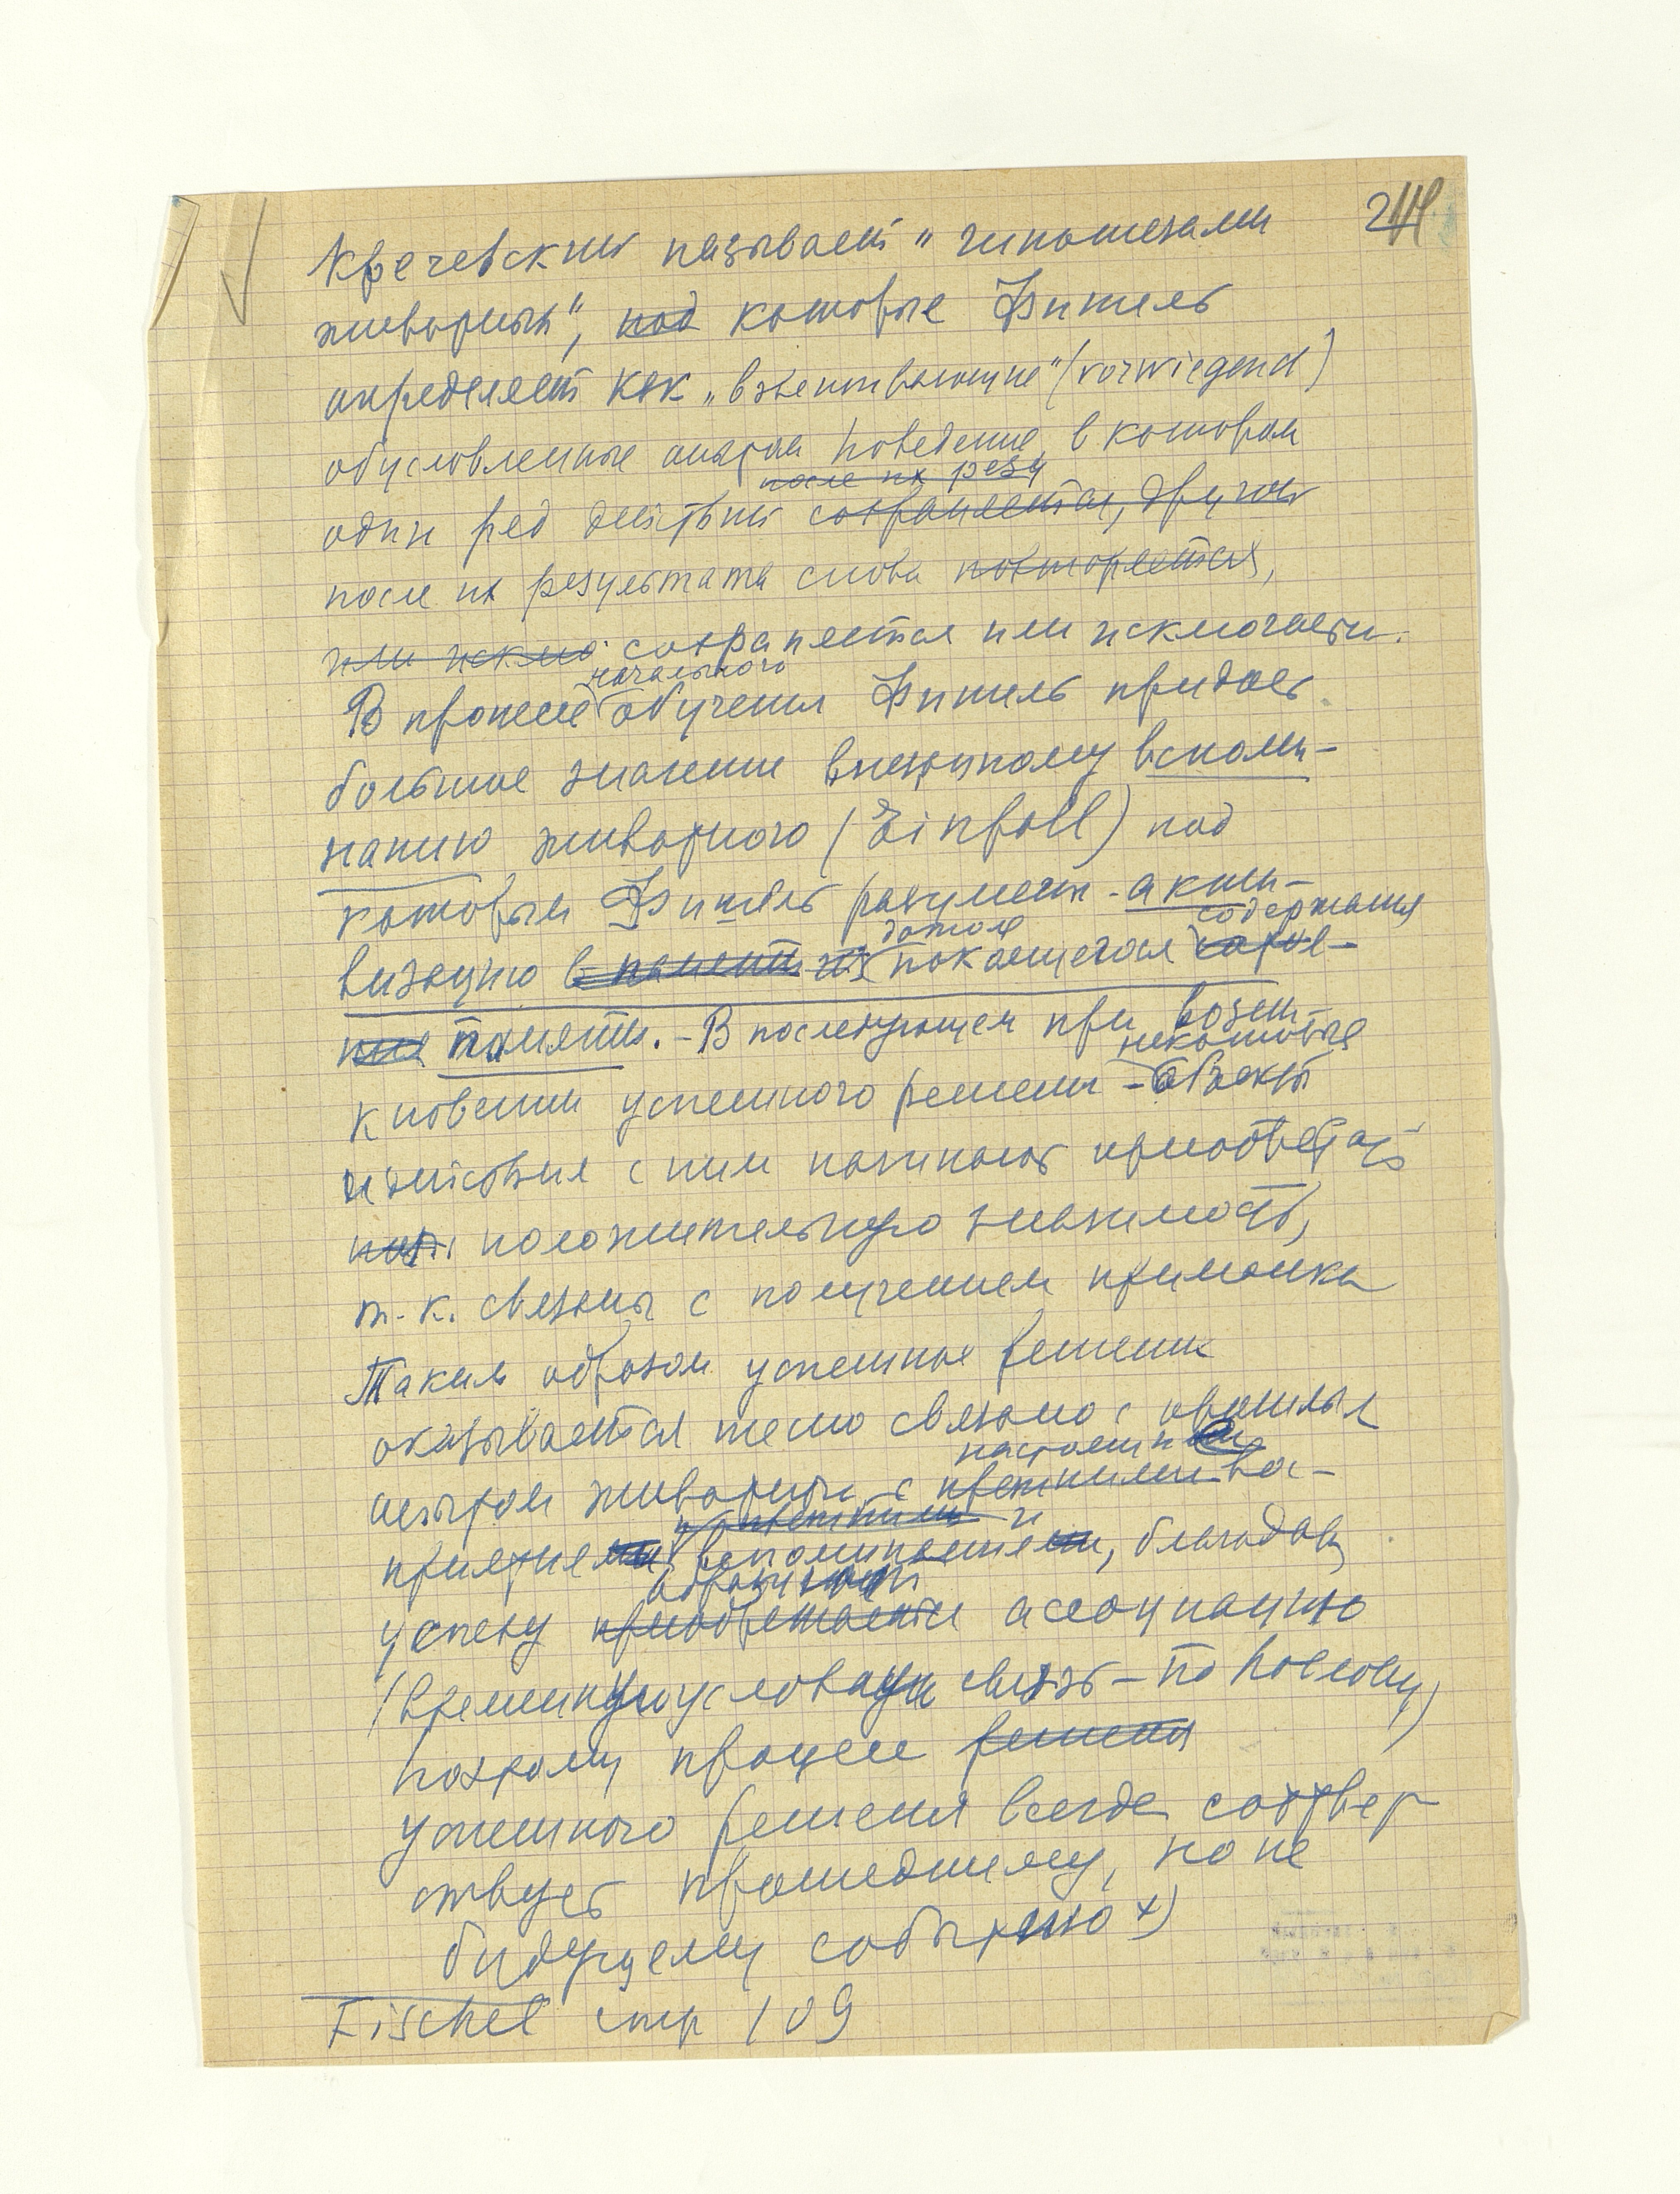 Кречевский называет „гипотезами
животных", под которые Фишель
определяет как „взвешивающие" (vorwiegend)
обусловленные опытом поведение, в котором
после их резу
один ряд действий сохраняется, другой
после их результата снова повторяется,
или исклю сохраняется или исключается.
начального
В процессе обучения Фишель придает
большое значение внезапному вспоми-
нанию животного (Einfall) под
которым Фишель разумеет - акти-
содержания
визацию в памяти покоящегося
ния памяти. - В последующем при возн-
некоторые
кновении успешного решения - объекты
и действия с ним начинают приобретать
положительную значимость,
т.к. связаны с получением приманки
Таким образом успешное решение
оказывается тесно связано с прошлым
настоящим
опытом животных с восп-
и
приятием вспоминанием, благодаря
успеху приобретается ассоциацию
(временную условную связь - по Павлову)
поэтому процесс решения
успешного решения всегда соответ
ствует прошедшему, но не
будущему событию x)
Fischel стр 109